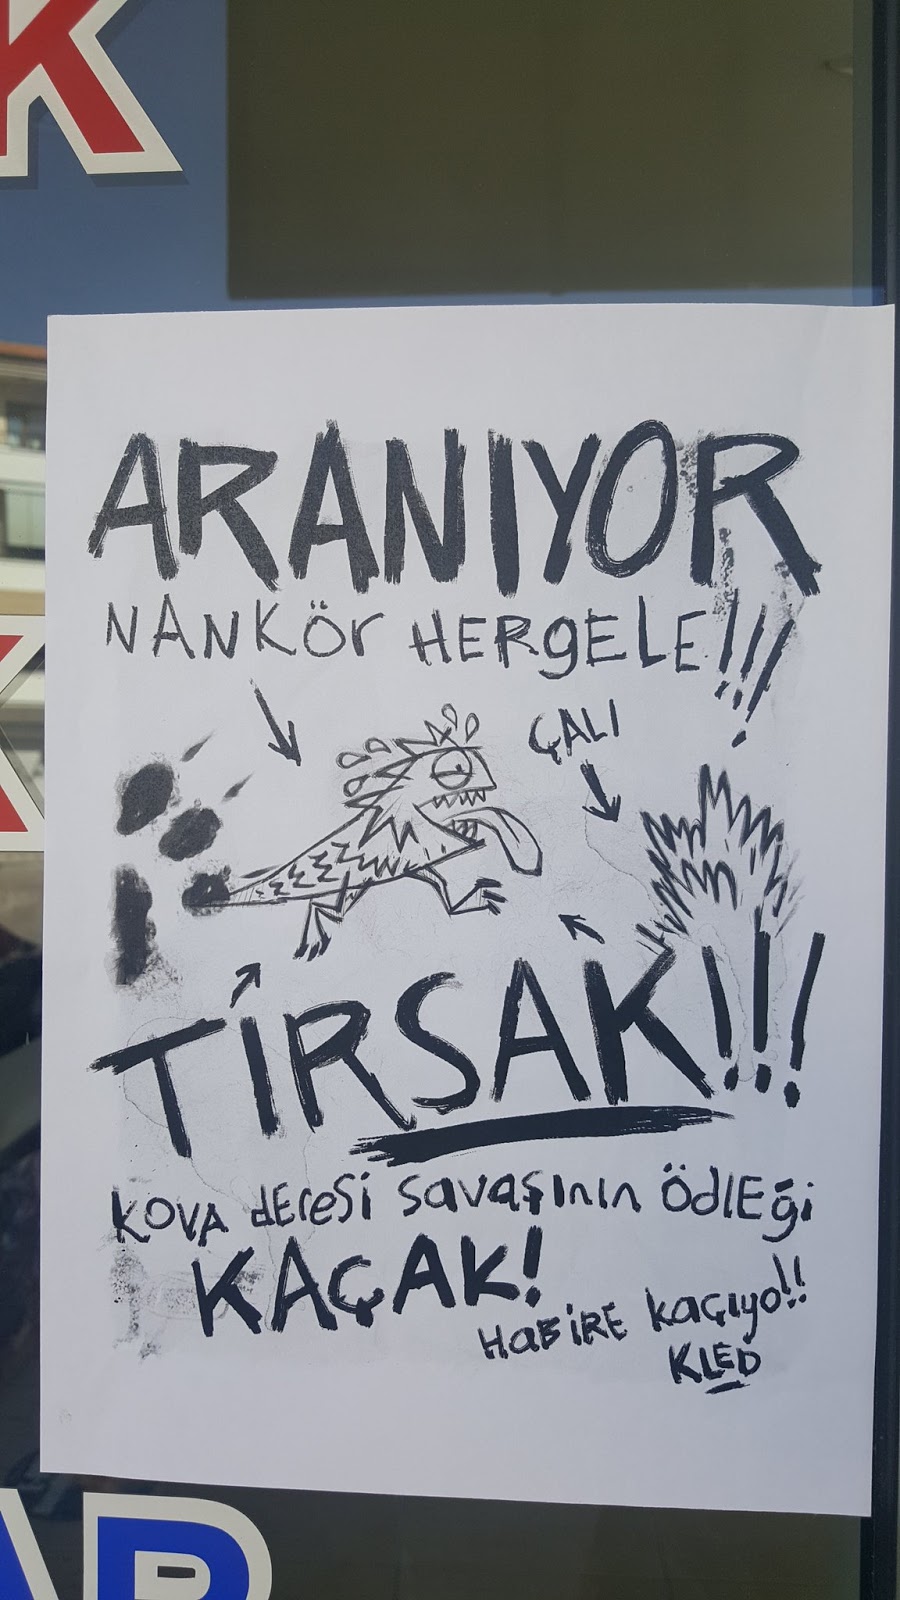 K
ARANIYOR
NANKÖr HERgELE!!!
ÇALI
TİRSAK!!!
KOVA dEresi savaşının ÖdlEği
KAÇAK!
HaBiRE kaçıyo!!
KLED
AR